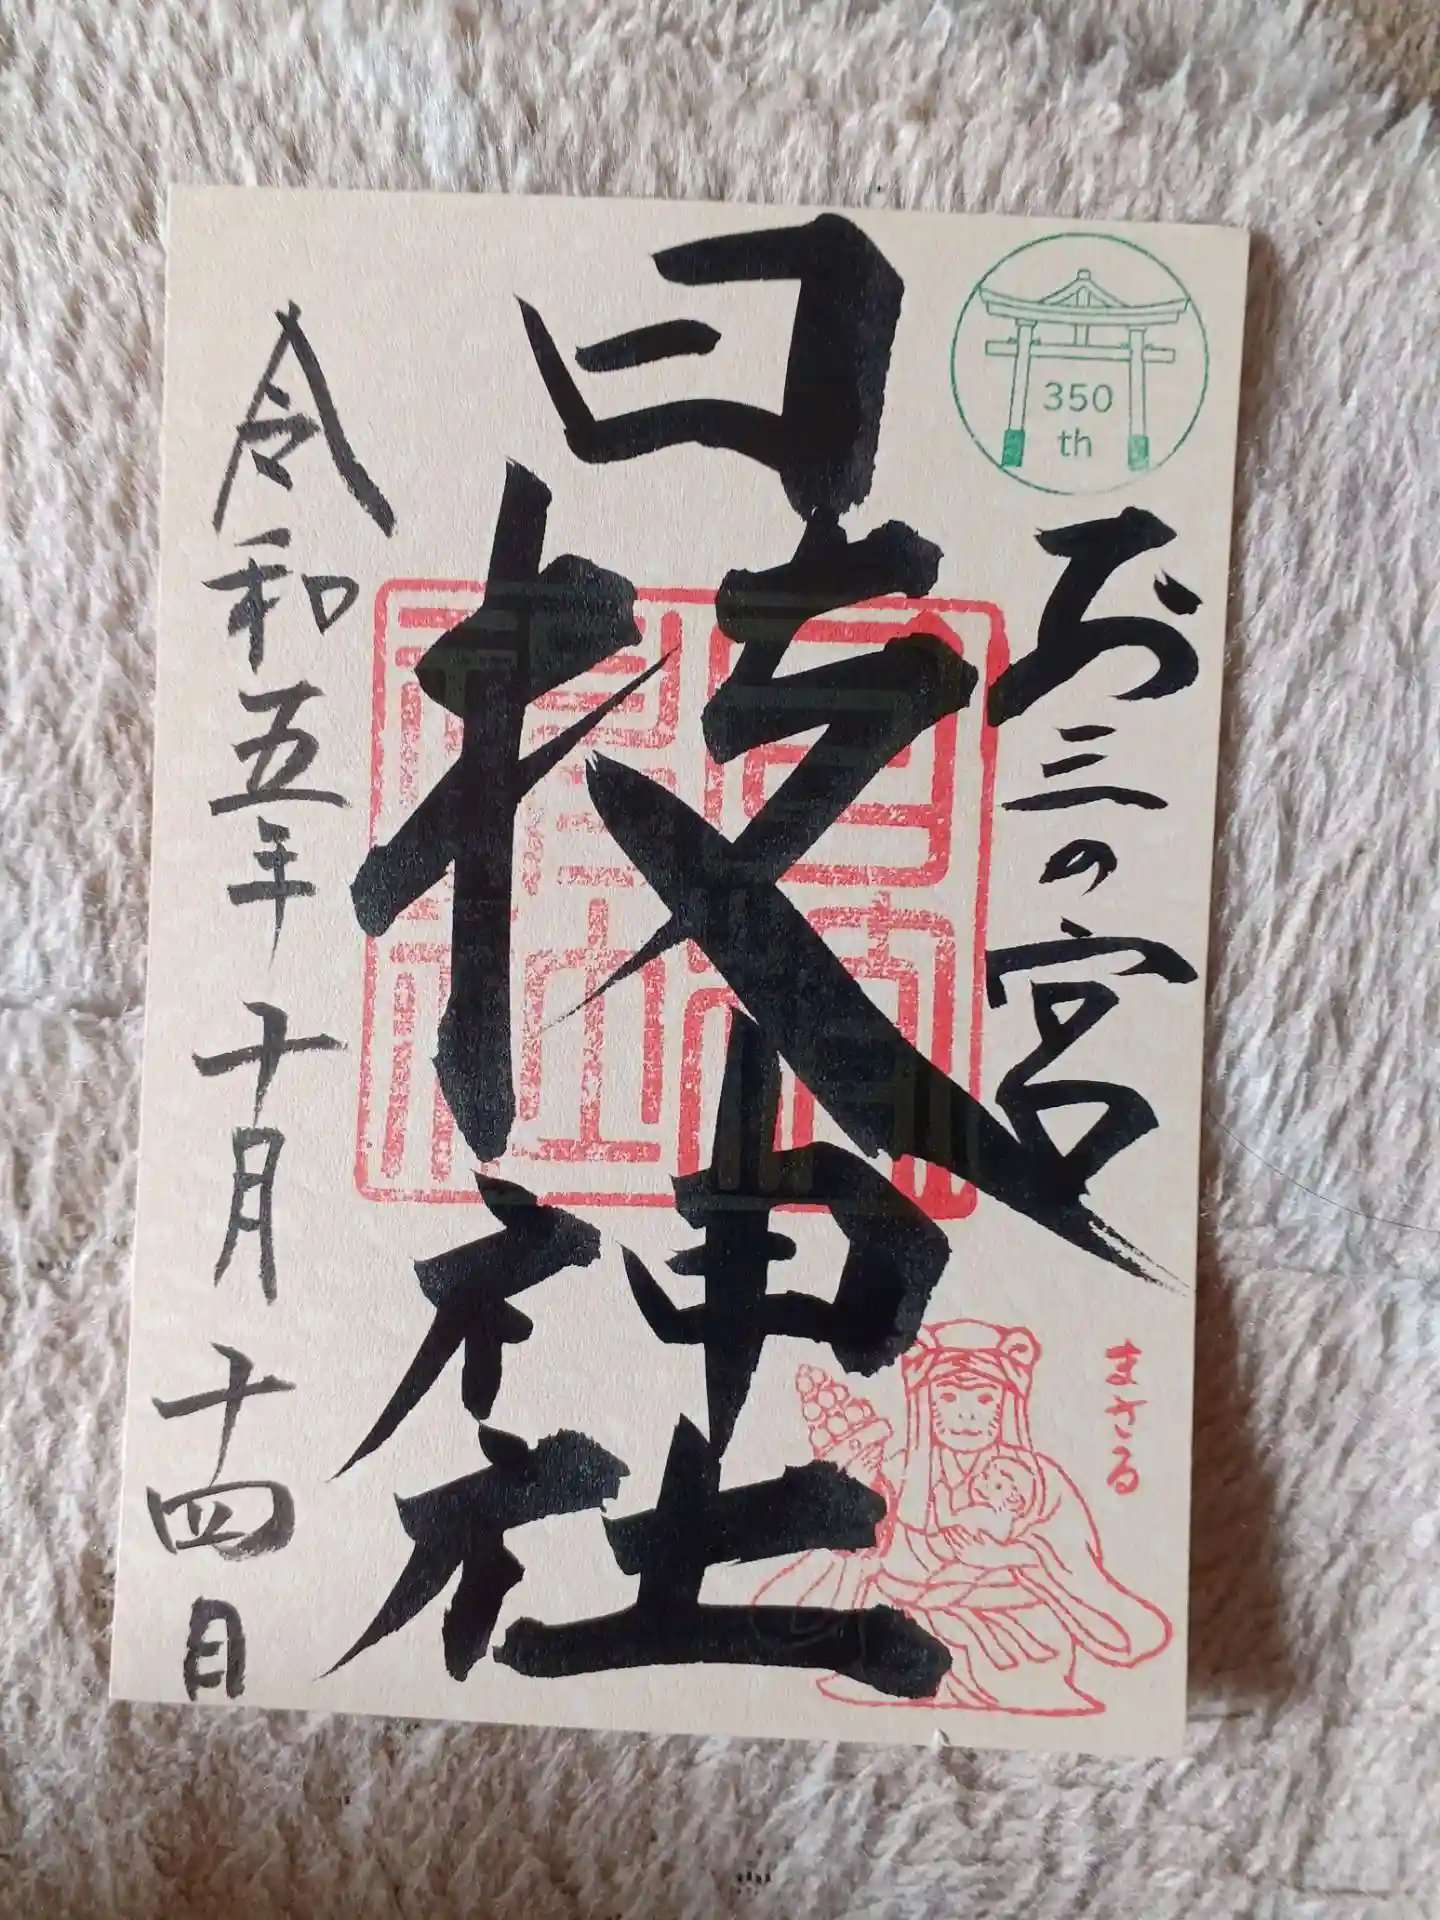 350
th
お三の宮
日枝神社
令和五年 十月 十四日
まさる